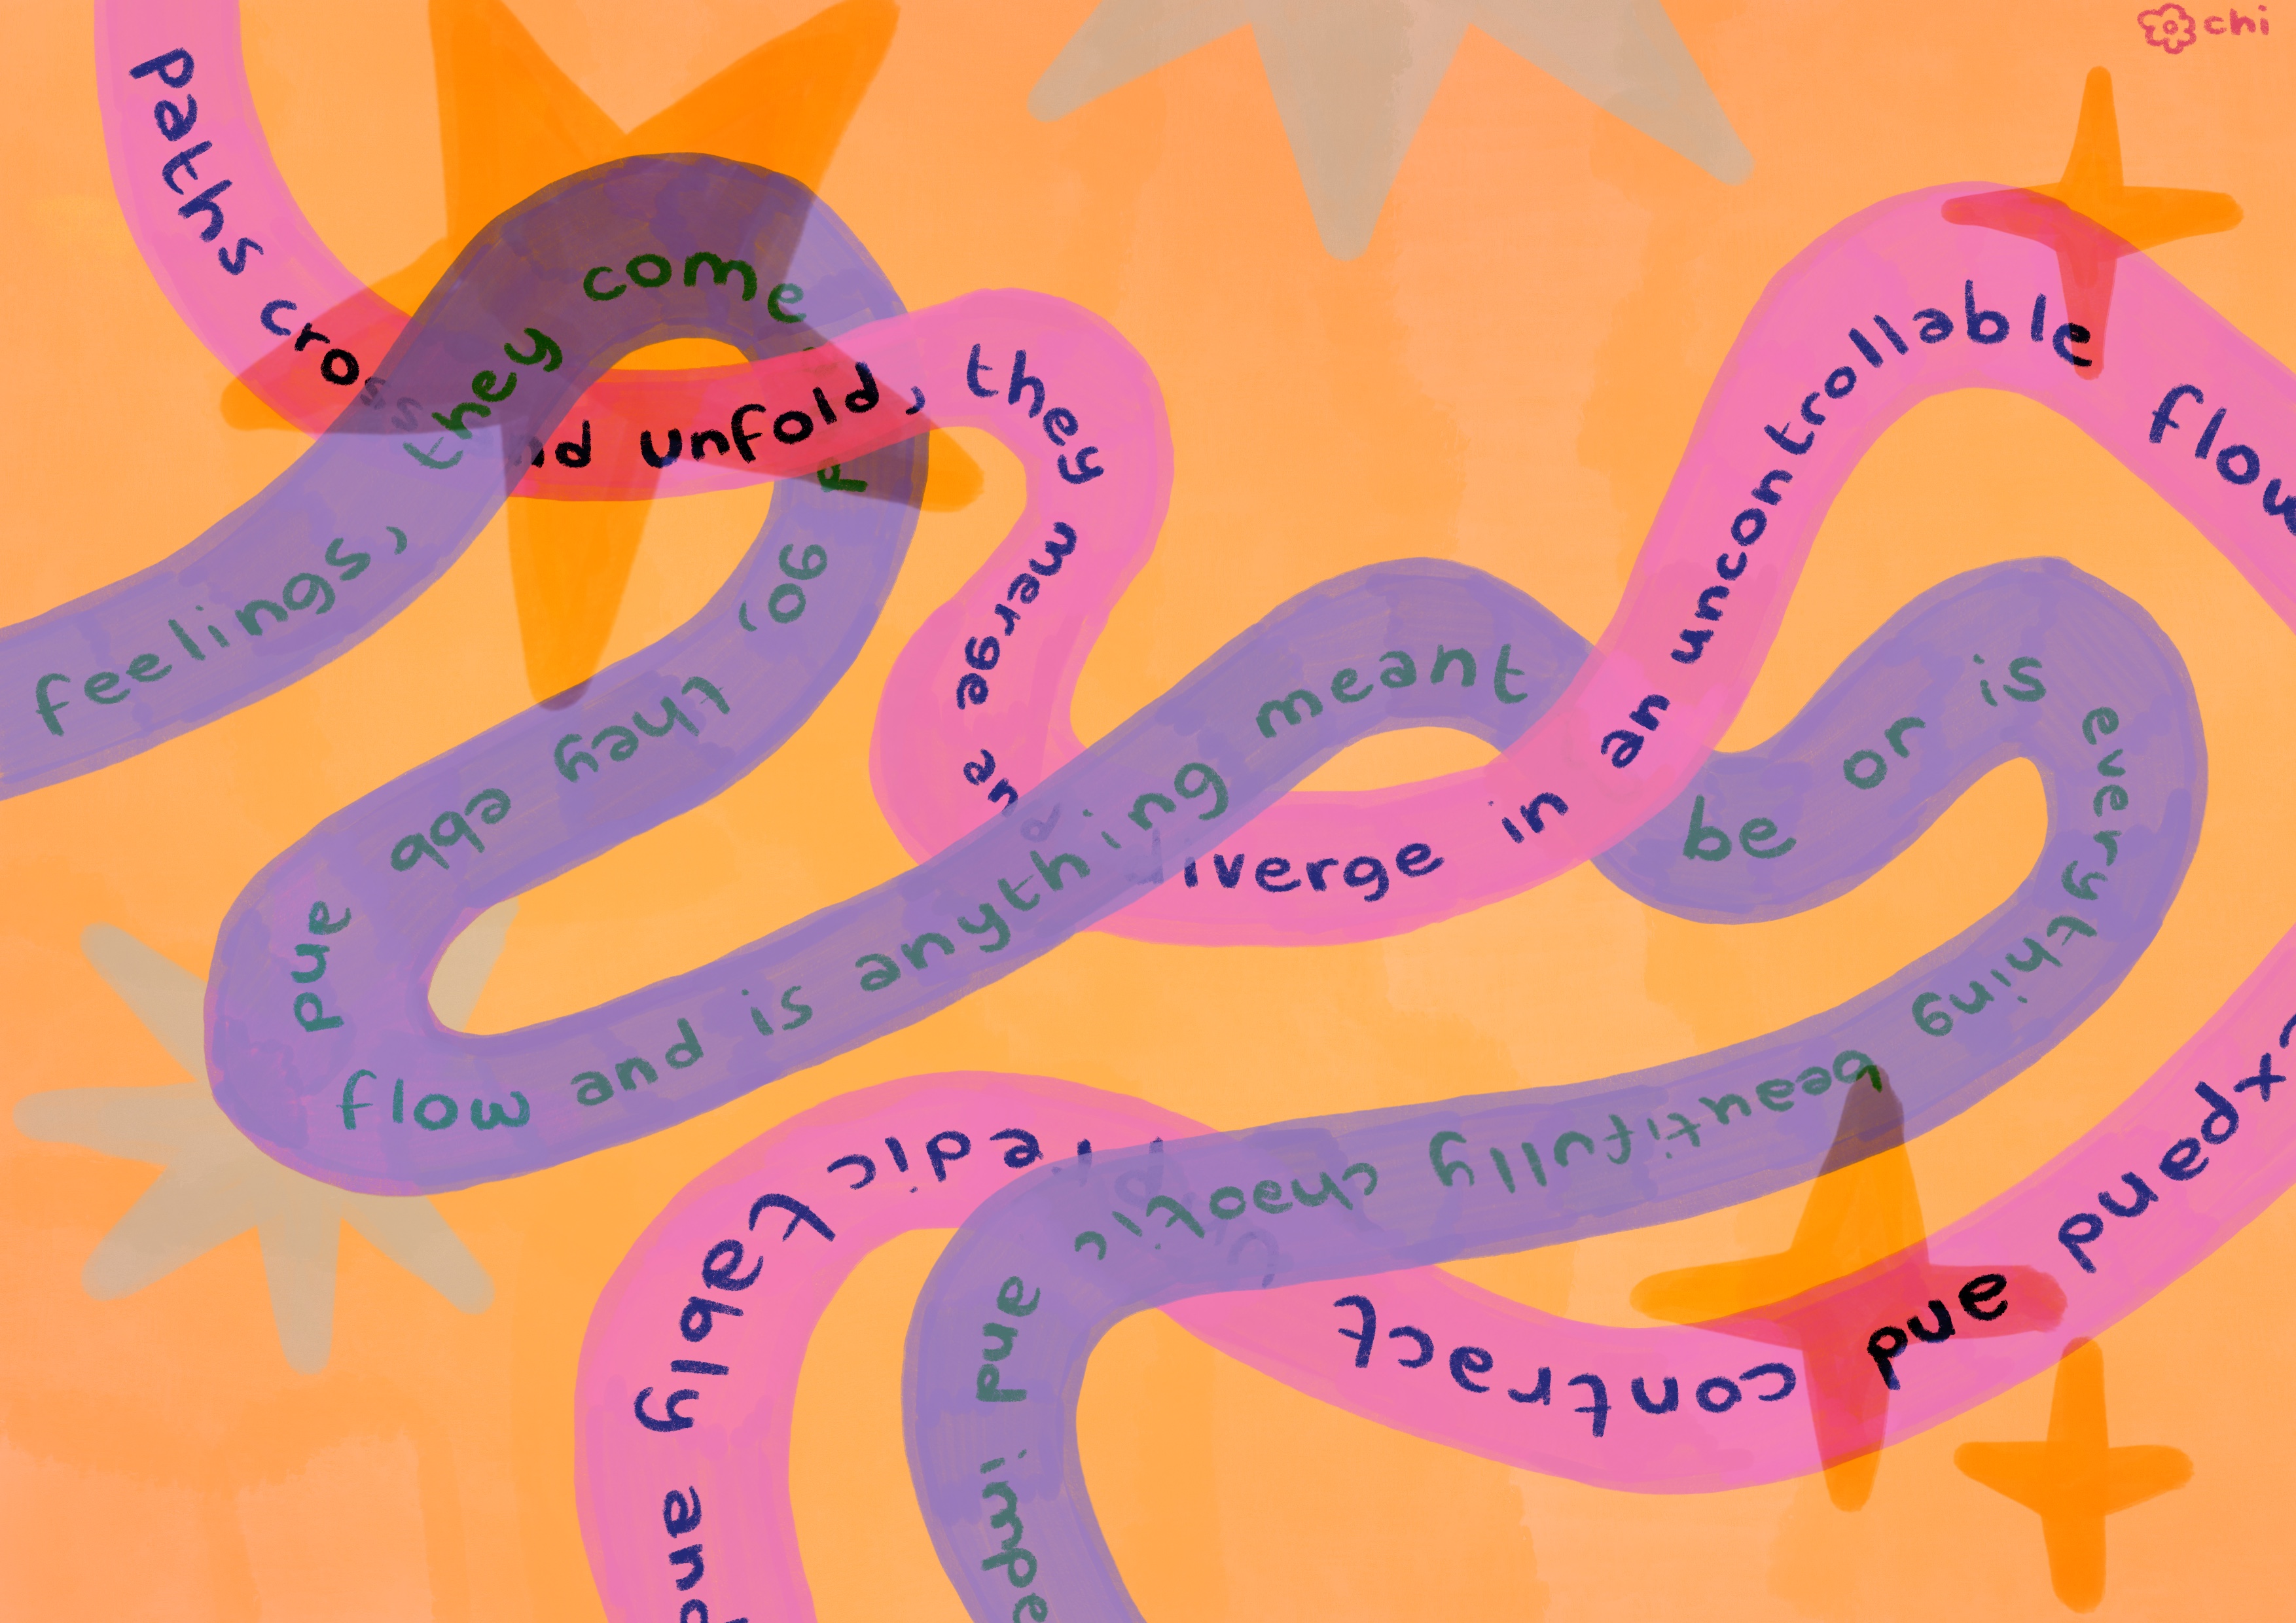 chi
paths cross and unfold, they merge and diverge in an uncontrollable flow
expand and contract unpredictably and
feelings, they come and go, they ebb and flow and is anything meant be or is everything beautifully chaotic and impe